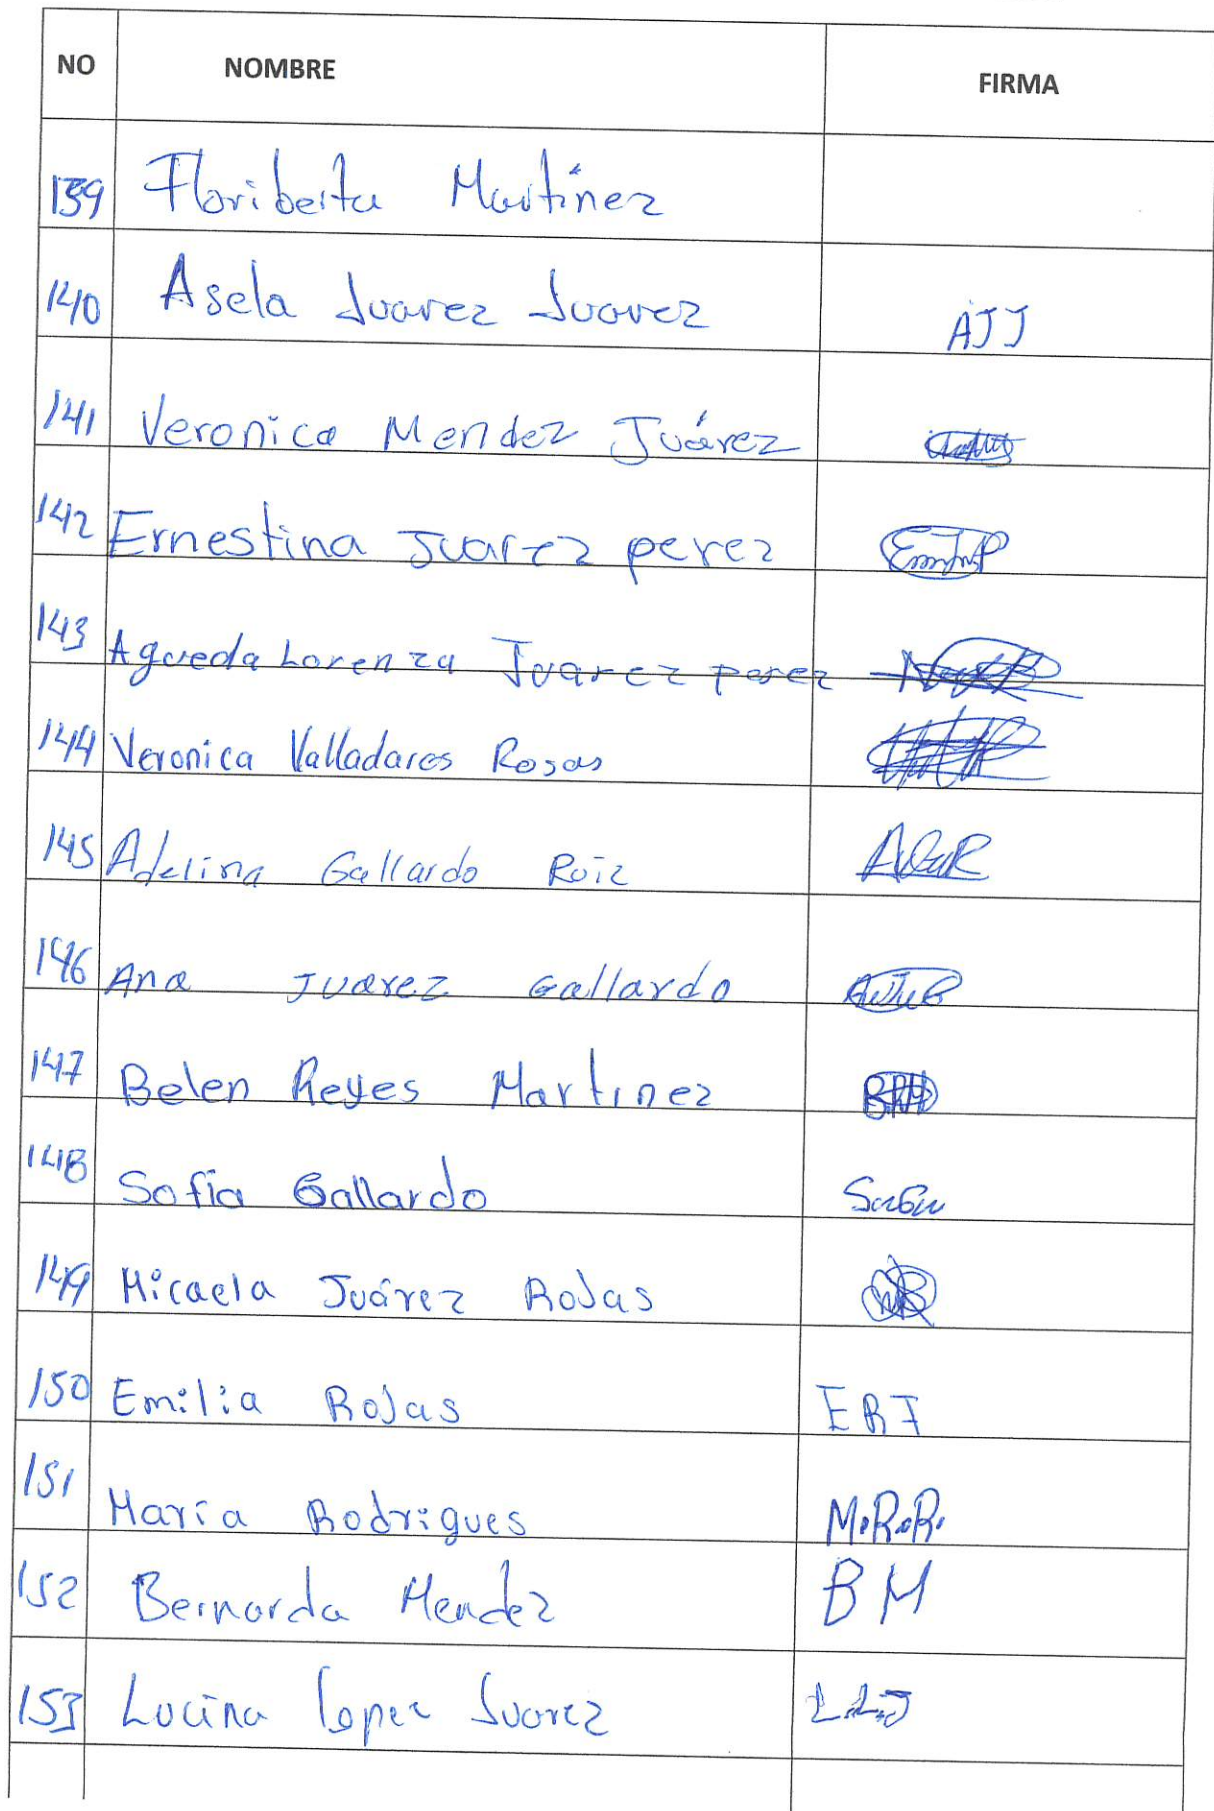 NO NOMBRE FIRMA
139 Floriberta Martinez
140 Asela Juarez Juarez AJJ
141 Veronica Mendez Juárez
142 Ernestina Juarez perez
143 Agueda Lorenza Juarez perez
144 Veronica Valladares Rosas
145 Adelina Gallardo Ruiz
146 Ana Juarez Gallardo
147 Belen Reyes Martinez BRM
148 Sofia Gallardo
149 Micaela Juárez Rojas
150 Emilia Rojas ERJ
151 María Rodrigues M.R.R.
152 Bernarda Mendez BM
153 Lucina lopez Juarez L.L.J